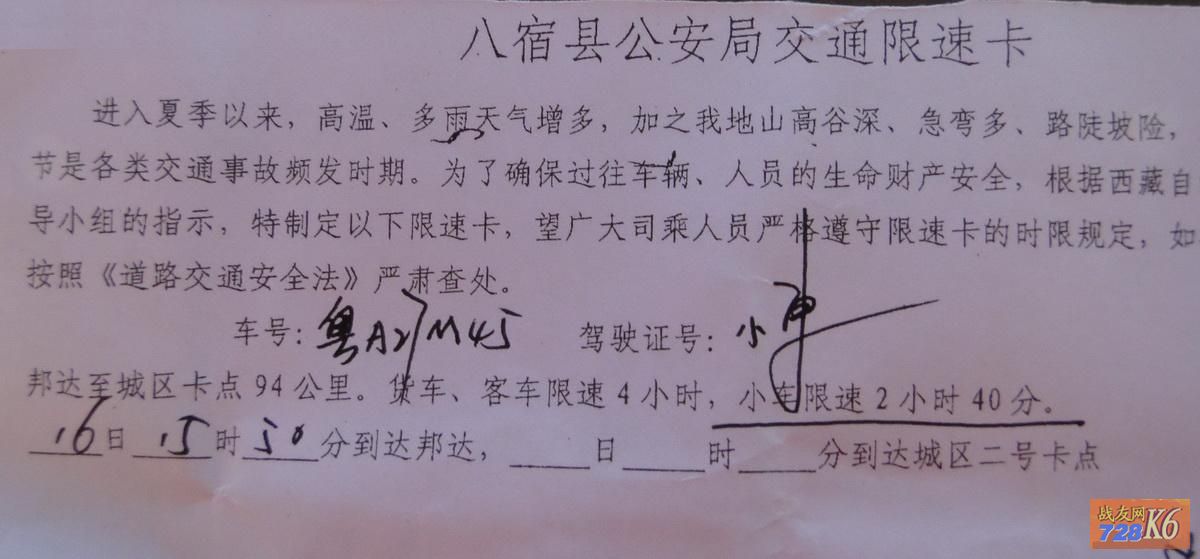 八宿县公安局交通限速卡
进入夏季以来，高温、多雨天气增多，加之我地山高谷深、急弯多、路陡坡险，
节是各类交通事故频发时期。为了确保过往车辆、人员的生命财产安全，根据西藏自
导小组的指示，特制定以下限速卡，望广大司乘人员严格遵守限速卡的时限规定，如
按照《道路交通安全法》严肃查处。
车号：粤A27M45 驾驶证号：小
邦达至城区卡点94公里。货车、客车限速4小时，小车限速2小时40分。
16日15时50分到达邦达，____日____时____分到达城区二号卡点
战友网
728K6